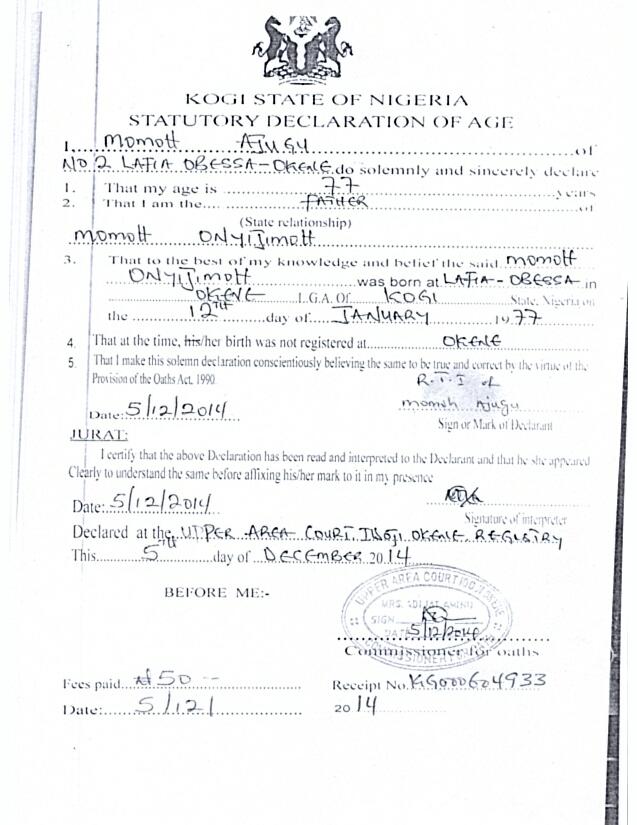 KOGI STATE OF NIGERIA
STATUTORY DECLARATION OF AGE
I, Momoh AJUGU of
NO 2 LAFIA OBESSA-OKENE do solemnly and sincerely declare
1. That my age is 77 years
2. That I am the FATHER of
(State relationship)
Momoh ONYIJimoh
3. That to the best of my knowledge and belief the said momoh
ONYIJimoh was born at LAFIA-OBESSA in
OKENE L.G.A. Of KOGI State, Nigeria on
the 12TH day of JANUARY 1977
4. That at the time, his/her birth was not registered at OKENE
5. That I make this solemn declaration conscientiously believing the same to be true and correct by the virtue of the
Provision of the Oaths Act, 1990.
R.T.I of
Momoh Ajugu
Date: 5/12/2014
Sign or Mark of Declarant
JURAT:
I certify that the above Declaration has been read and interpreted to the Declarant and that he she appeared
Clearly to understand the same before affixing his/her mark to it in my presence
Date: 5/12/2014
Signature of interpreter
Declared at the UPPER AREA COURT, IDOJI OKENE, REGISTRY
This 5TH day of DECEMBER 2014
BEFORE ME:-
UPPER AREA COURT IDOJI OKENE
MRS. ADIJAT AMINU
SIGN
DATE 5/12/2014
COMMISSIONER
Commissioner for oaths
Fees paid ₦50 --
Receipt No. KG000604933
Date: 5/12/
2014